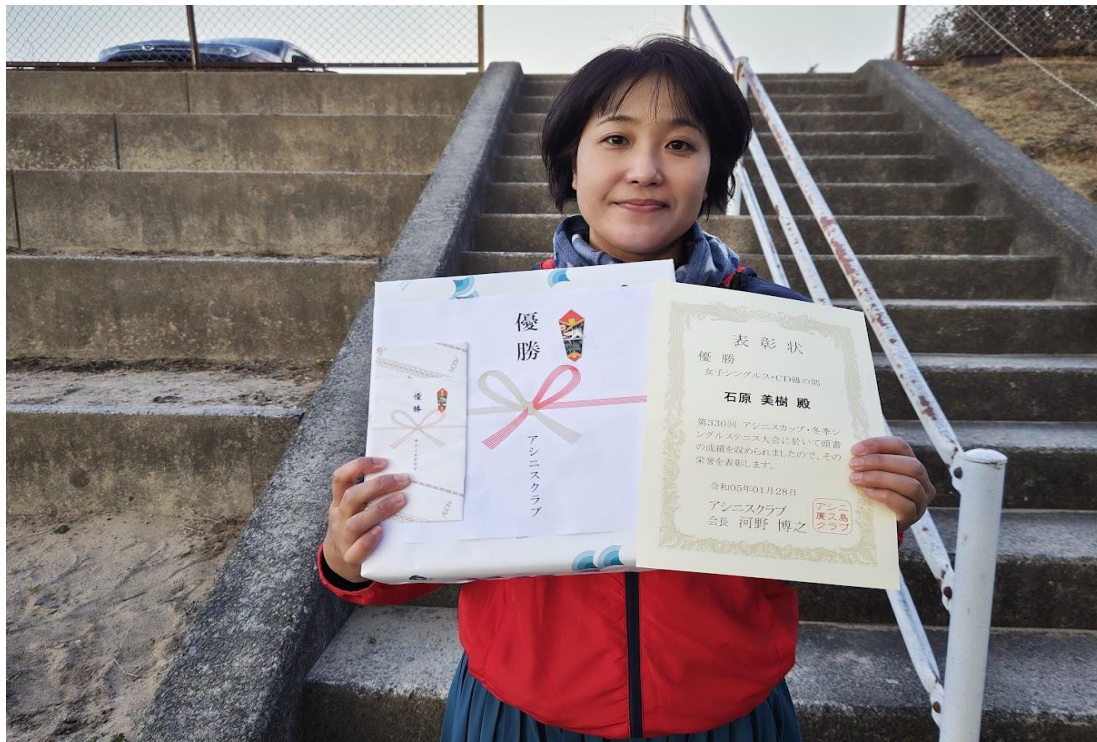 優勝
アシニスクラブ
優勝
表彰状
優勝
女子シングルス・CD級の部
石原 美樹 殿
第330回 アシニスカップ・冬季シ
ングルステニス大会に於いて頭書
の成績を収められましたので、その
栄誉を表彰します。
令和05年01月28日
アシニスクラブ
会長 河野 博之
アシニ
廣ス島
クラブ